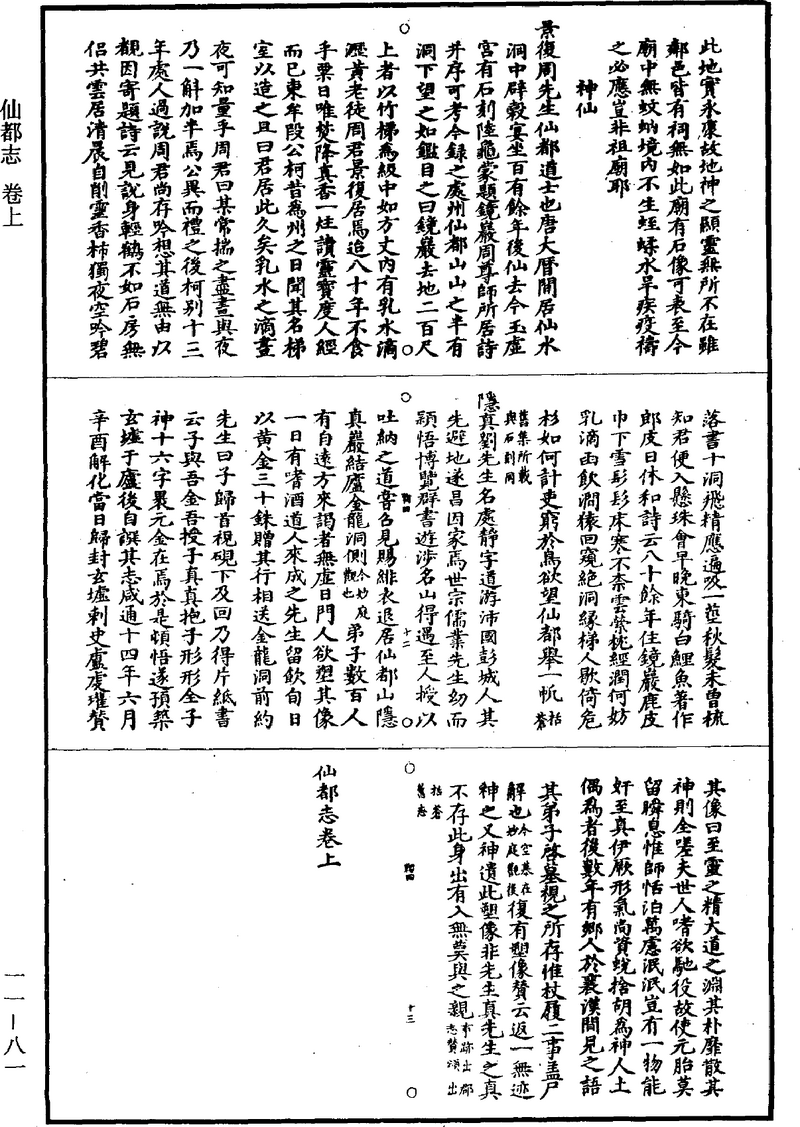 仙都志 卷上
此地實永康故地神之顯靈無所不在雖
鄰邑皆有祠無如此廟有石像可表至今
廟中無蚊蚋境內不生蛭蝚水旱疾疫禱
之必應豈非祖廟耶
神仙
景復周先生仙都道士也唐大曆間居仙水
洞中辟穀宴坐百有餘年後仙去今玉虛
宮有石刻陸龜蒙題鏡巖周尊師所居詩
并序可考今錄之處州仙都山山之半有
洞下望之如鑑目之曰鏡巖去地二百尺
上者以竹梯為級中如方丈內有乳水滴
瀝黃老徒周君景復居焉迨八十年不食
乎粟日唯焚降真香一炷讀靈寶度人經
而已東牟段公柯昔為州之日聞其名梯
室以造之且曰君居此久矣乳水之滴晝
夜可知量乎周君曰某常揣之盡晝與夜
乃一斛加半焉公異而禮之後柯別十三
年處人過說周君尚存吟想其道無由以
觀因寄題詩云見說身輕鶴不如石房無
侶共雲居清晨自削靈香柿獨夜空吟碧
落書十洞飛精應遍吸一莖秋髮未曾梳
知君便入懸珠會早晚東騎白鯉魚著作
郎皮日休和詩云八十餘年住鏡巖鹿皮
巾下雪髟髟床寒不奈雲縈枕經潤何妨
乳滴函飲澗猿回窺絕洞緣梯人歇倚危
杉如何計吏窮於鳥欲望仙都舉一帆括蒼
舊集所載
與石刻同
隱真劉先生名處靜字道游沛國彭城人其
先避地遂昌因家焉世宗儒業先生幼而
穎悟博覽群書遊涉名山得遇至人授以
吐納之道嘗召見賜緋衣退居仙都山隱
真巖結廬金龍洞側今妙庭觀也弟子數百人
有自遠方來謁者無虛日門人欲塑其像
一日有嗜酒道人來成之先生留飲旬日
以黃金三十銖贈其行相送金龍洞前約
先生曰子歸首視硯下及回乃得片紙書
云子與吾金吾授子真真抱子形形全子
神十六字曩元金在焉於是頓悟遂預築
玄墟于廬後自譔其志咸通十四年六月
辛酉解化當日歸封玄墟刺史盧虔瓘贊
其像曰至靈之精大道之淵其朴靡散其
神則全嗟夫世人嗜欲馳役故使元胎莫
留瞬息惟師恬泊萬慮泯泯豈有一物能
奸至真伊厥形氣尚資蛻捨胡為神人土
偶為者後數年有鄉人於襄漢間見之語
其弟子啓墓視之所存惟杖履二事盖尸
解也今空墓在妙庭觀後復有塑像贊云返一無迹
神之又神遺此塑像非先生真先生之真
不存此身出有入無莫與之親事跡出郡志贊頌出
括蒼
舊志
仙都志卷上
十二
十三
一一—八一